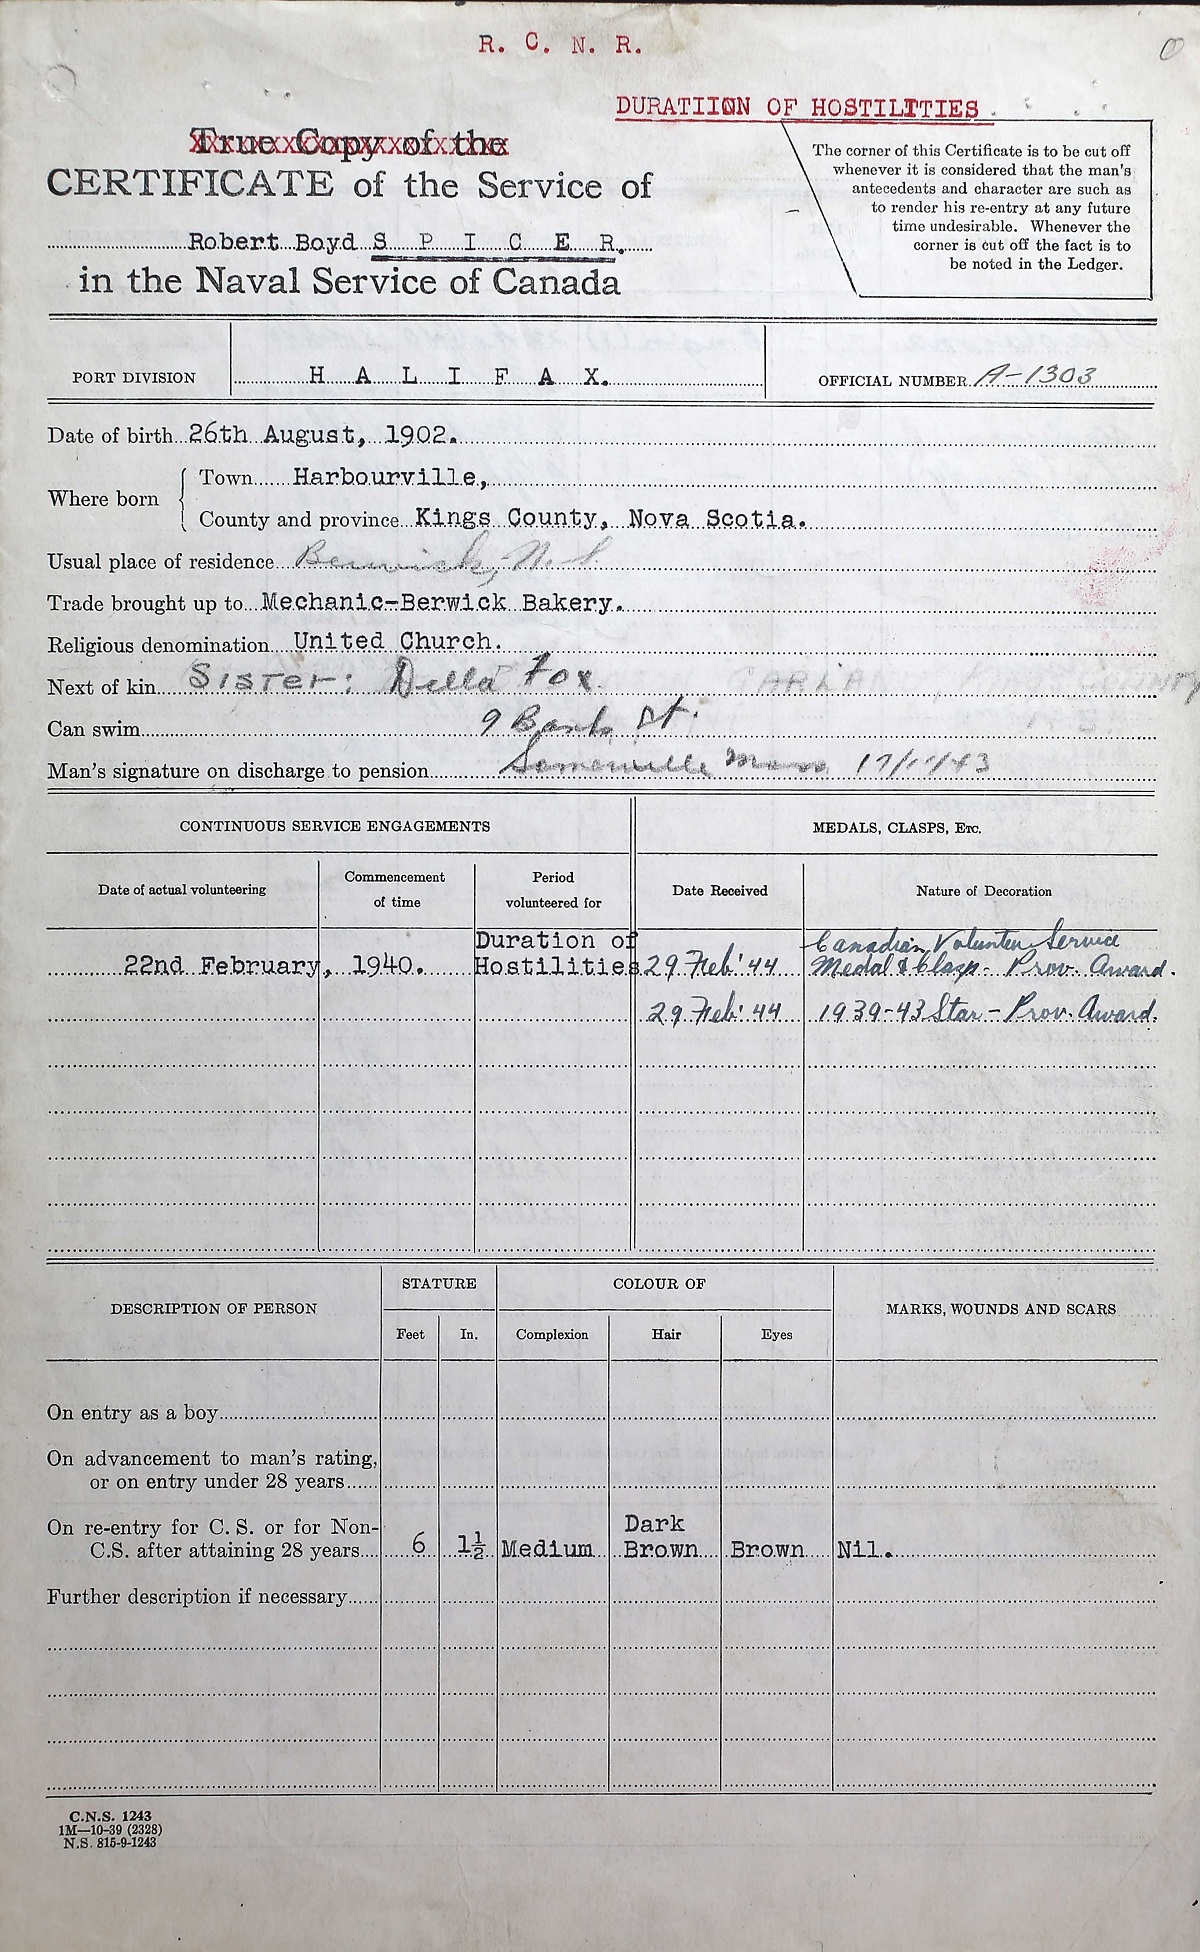 R. C. N. R.
DURATIION OF HOSTILITIES
True Copy of the
CERTIFICATE of the Service of
Robert Boyd S P I C E R.
in the Naval Service of Canada
The corner of this Certificate is to be cut off
whenever it is considered that the man's
antecedents and character are such as
to render his re-entry at any future
time undesirable. Whenever the
corner is cut off the fact is to
be noted in the Ledger.
PORT DIVISION H A L I F A X. OFFICIAL NUMBER A-1303
Date of birth 26th August, 1902.
Where born
Town Harbourville,
County and province Kings County, Nova Scotia.
Usual place of residence Berwick, N.S.
Trade brought up to Mechanic-Berwick Bakery.
Religious denomination United Church.
Next of kin Sister: Della Fox
Can swim 9 Bank St.
Man's signature on discharge to pension Somerville Mass 17/11/43
CONTINUOUS SERVICE ENGAGEMENTS MEDALS, CLASPS, Etc.
Date of actual volunteering Commencement of time Period volunteered for Date Received Nature of Decoration
22nd February, 1940. Duration of Hostilities 29 Feb' 44 Canadian Volunteer Service Medal & Clasp - Prov. Award.
29 Feb' 44 1939-43 Star - Prov. Award.
DESCRIPTION OF PERSON STATURE COLOUR OF MARKS, WOUNDS AND SCARS
Feet In. Complexion Hair Eyes
On entry as a boy
On advancement to man's rating,
or on entry under 28 years
On re-entry for C. S. or for Non-
C.S. after attaining 28 years 6 1½ Medium Dark Brown Brown Nil.
Further description if necessary
C.N.S. 1243
1M—10-39 (2328)
N.S. 815-9-1243